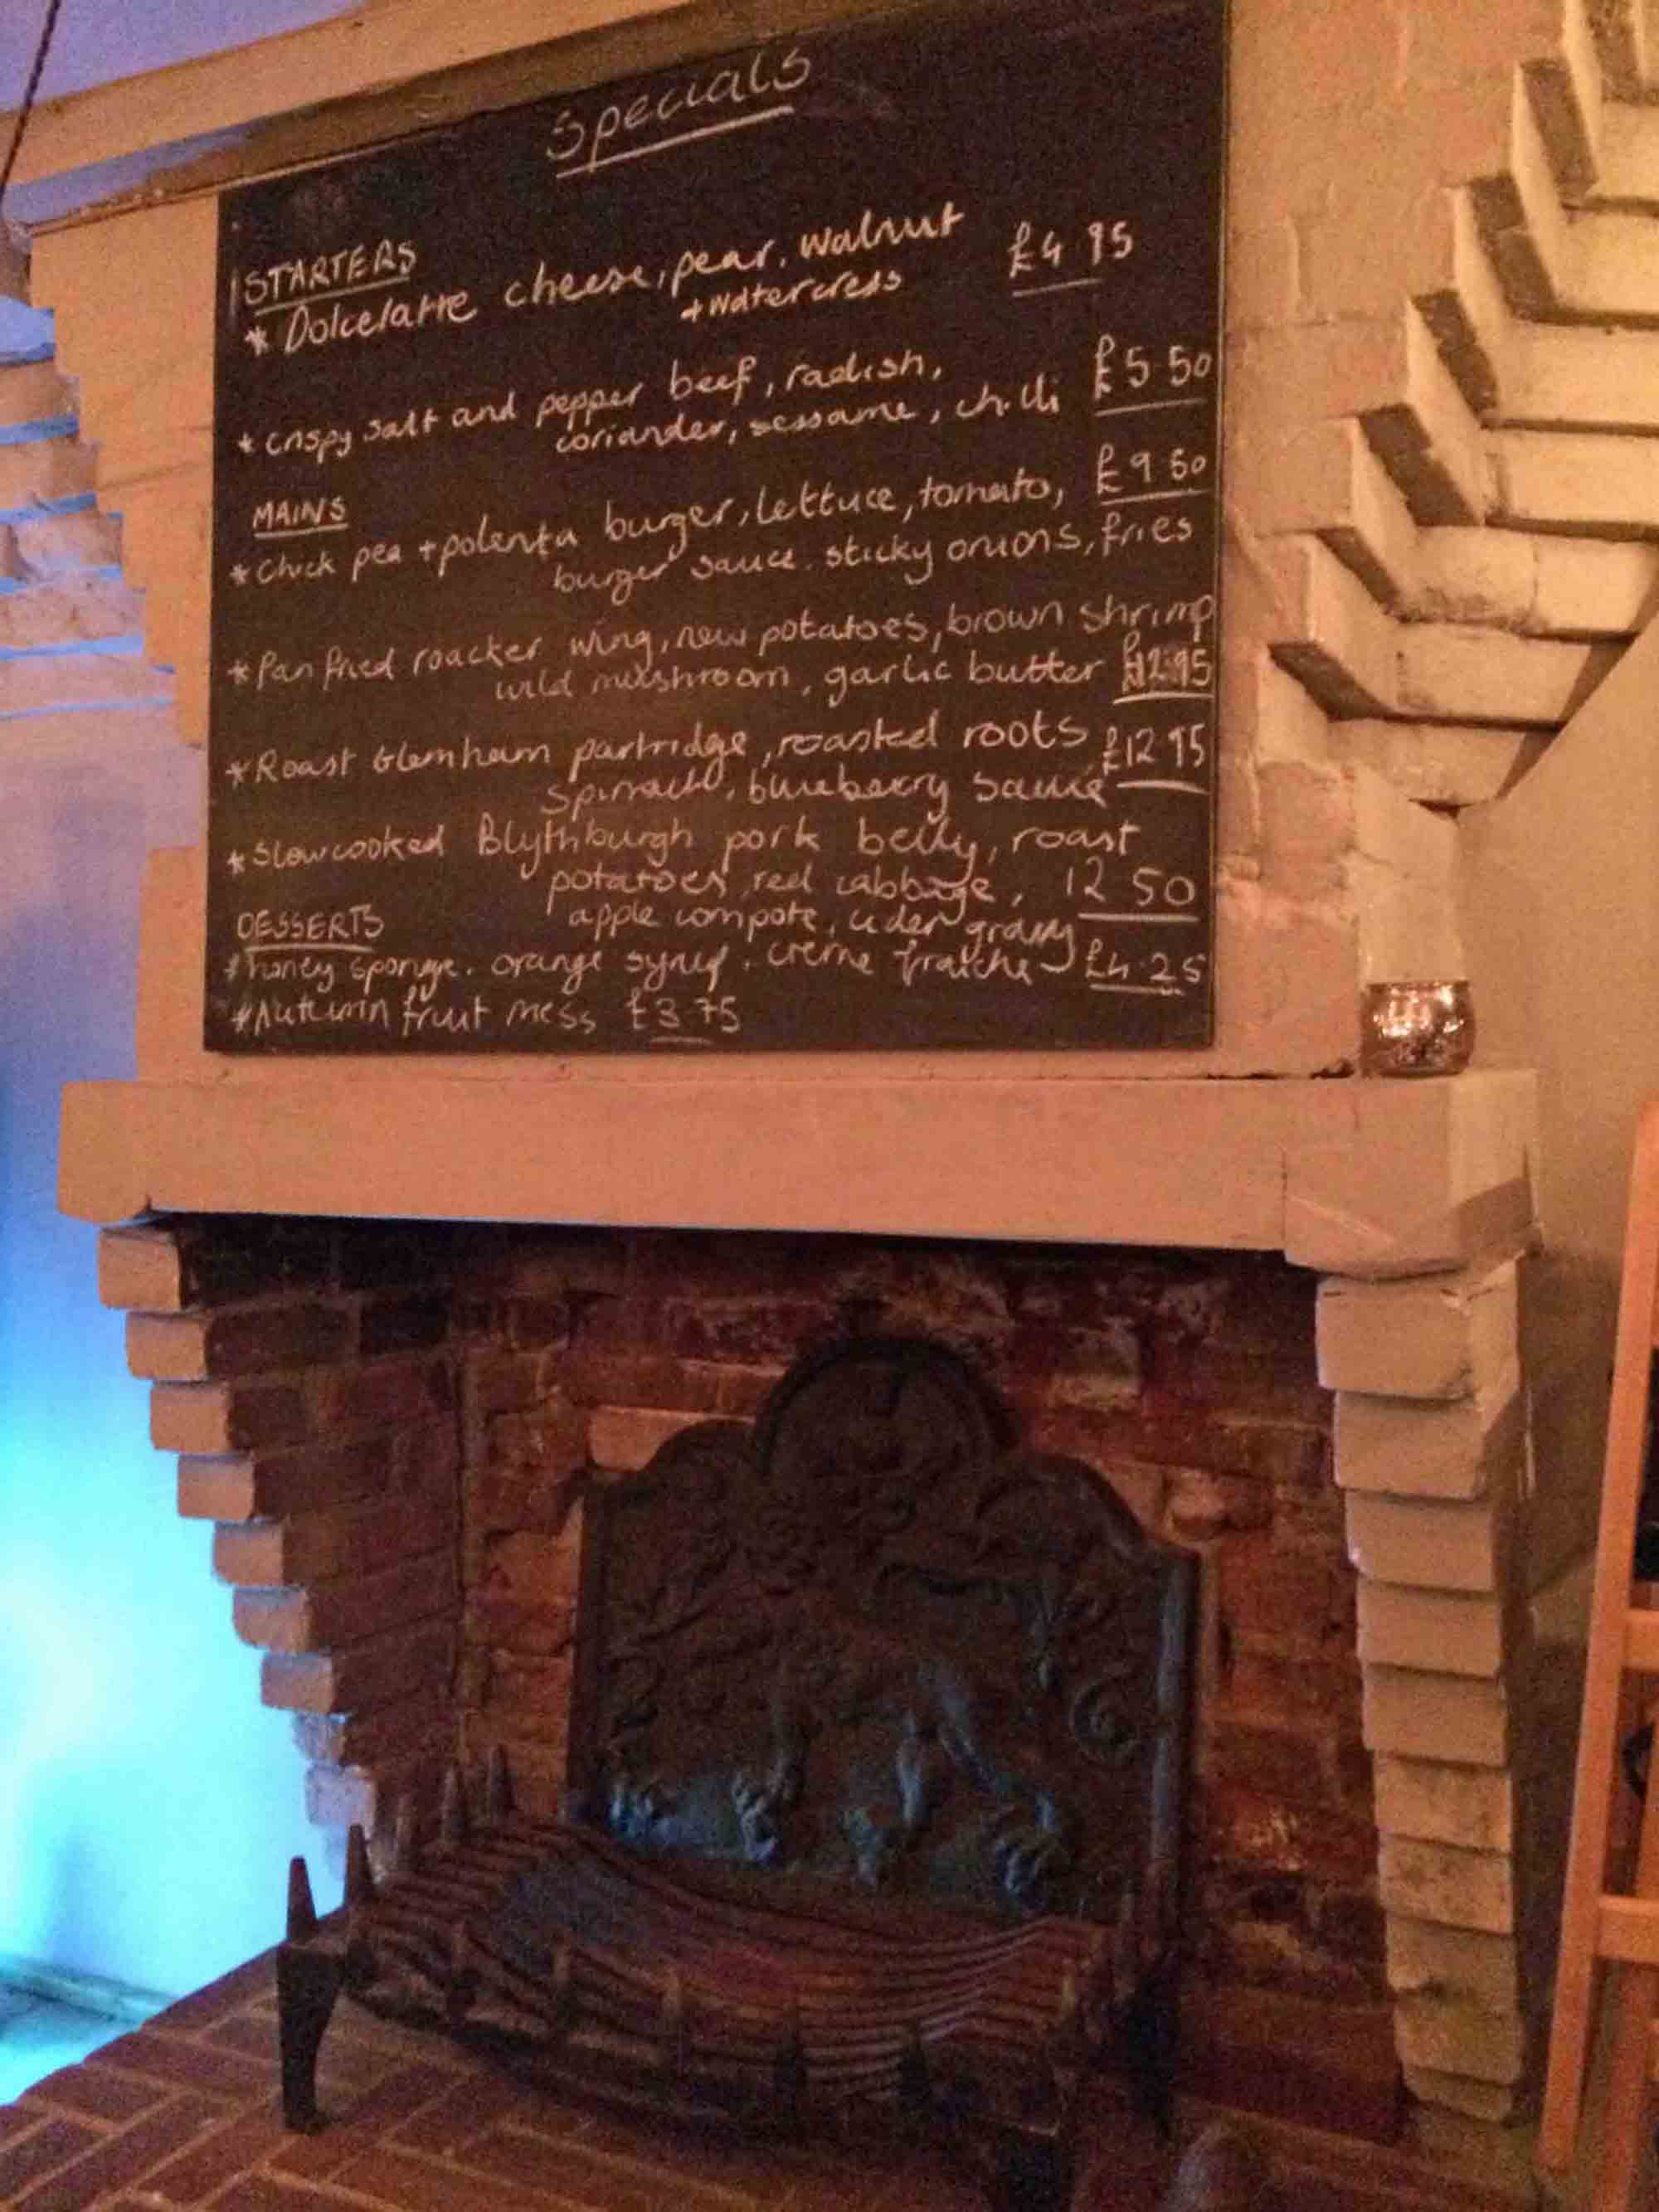 Specials
STARTERS
* Dolcelatte cheese, pear, walnut £4.95
+ watercress
* crispy salt and pepper beef, radish, £5.50
coriander, sessame, chilli
MAINS
* Chick pea + polenta burger, lettuce, tomato, £9.50
burger sauce. sticky onions, fries
* Pan fried roacker wing, new potatoes, brown shrimp
wild mushroom, garlic butter £12.95
* Roast Glemham partridge, roasted roots £12.95
spinach, blueberry sauce
* Slow cooked Blythburgh pork belly, roast
potatoes, red cabbage, 12.50
apple compote, cider gravy
DESSERTS
* honey sponge. orange syrup. creme fraiche £4.25
* Autumn fruit mess £3.75